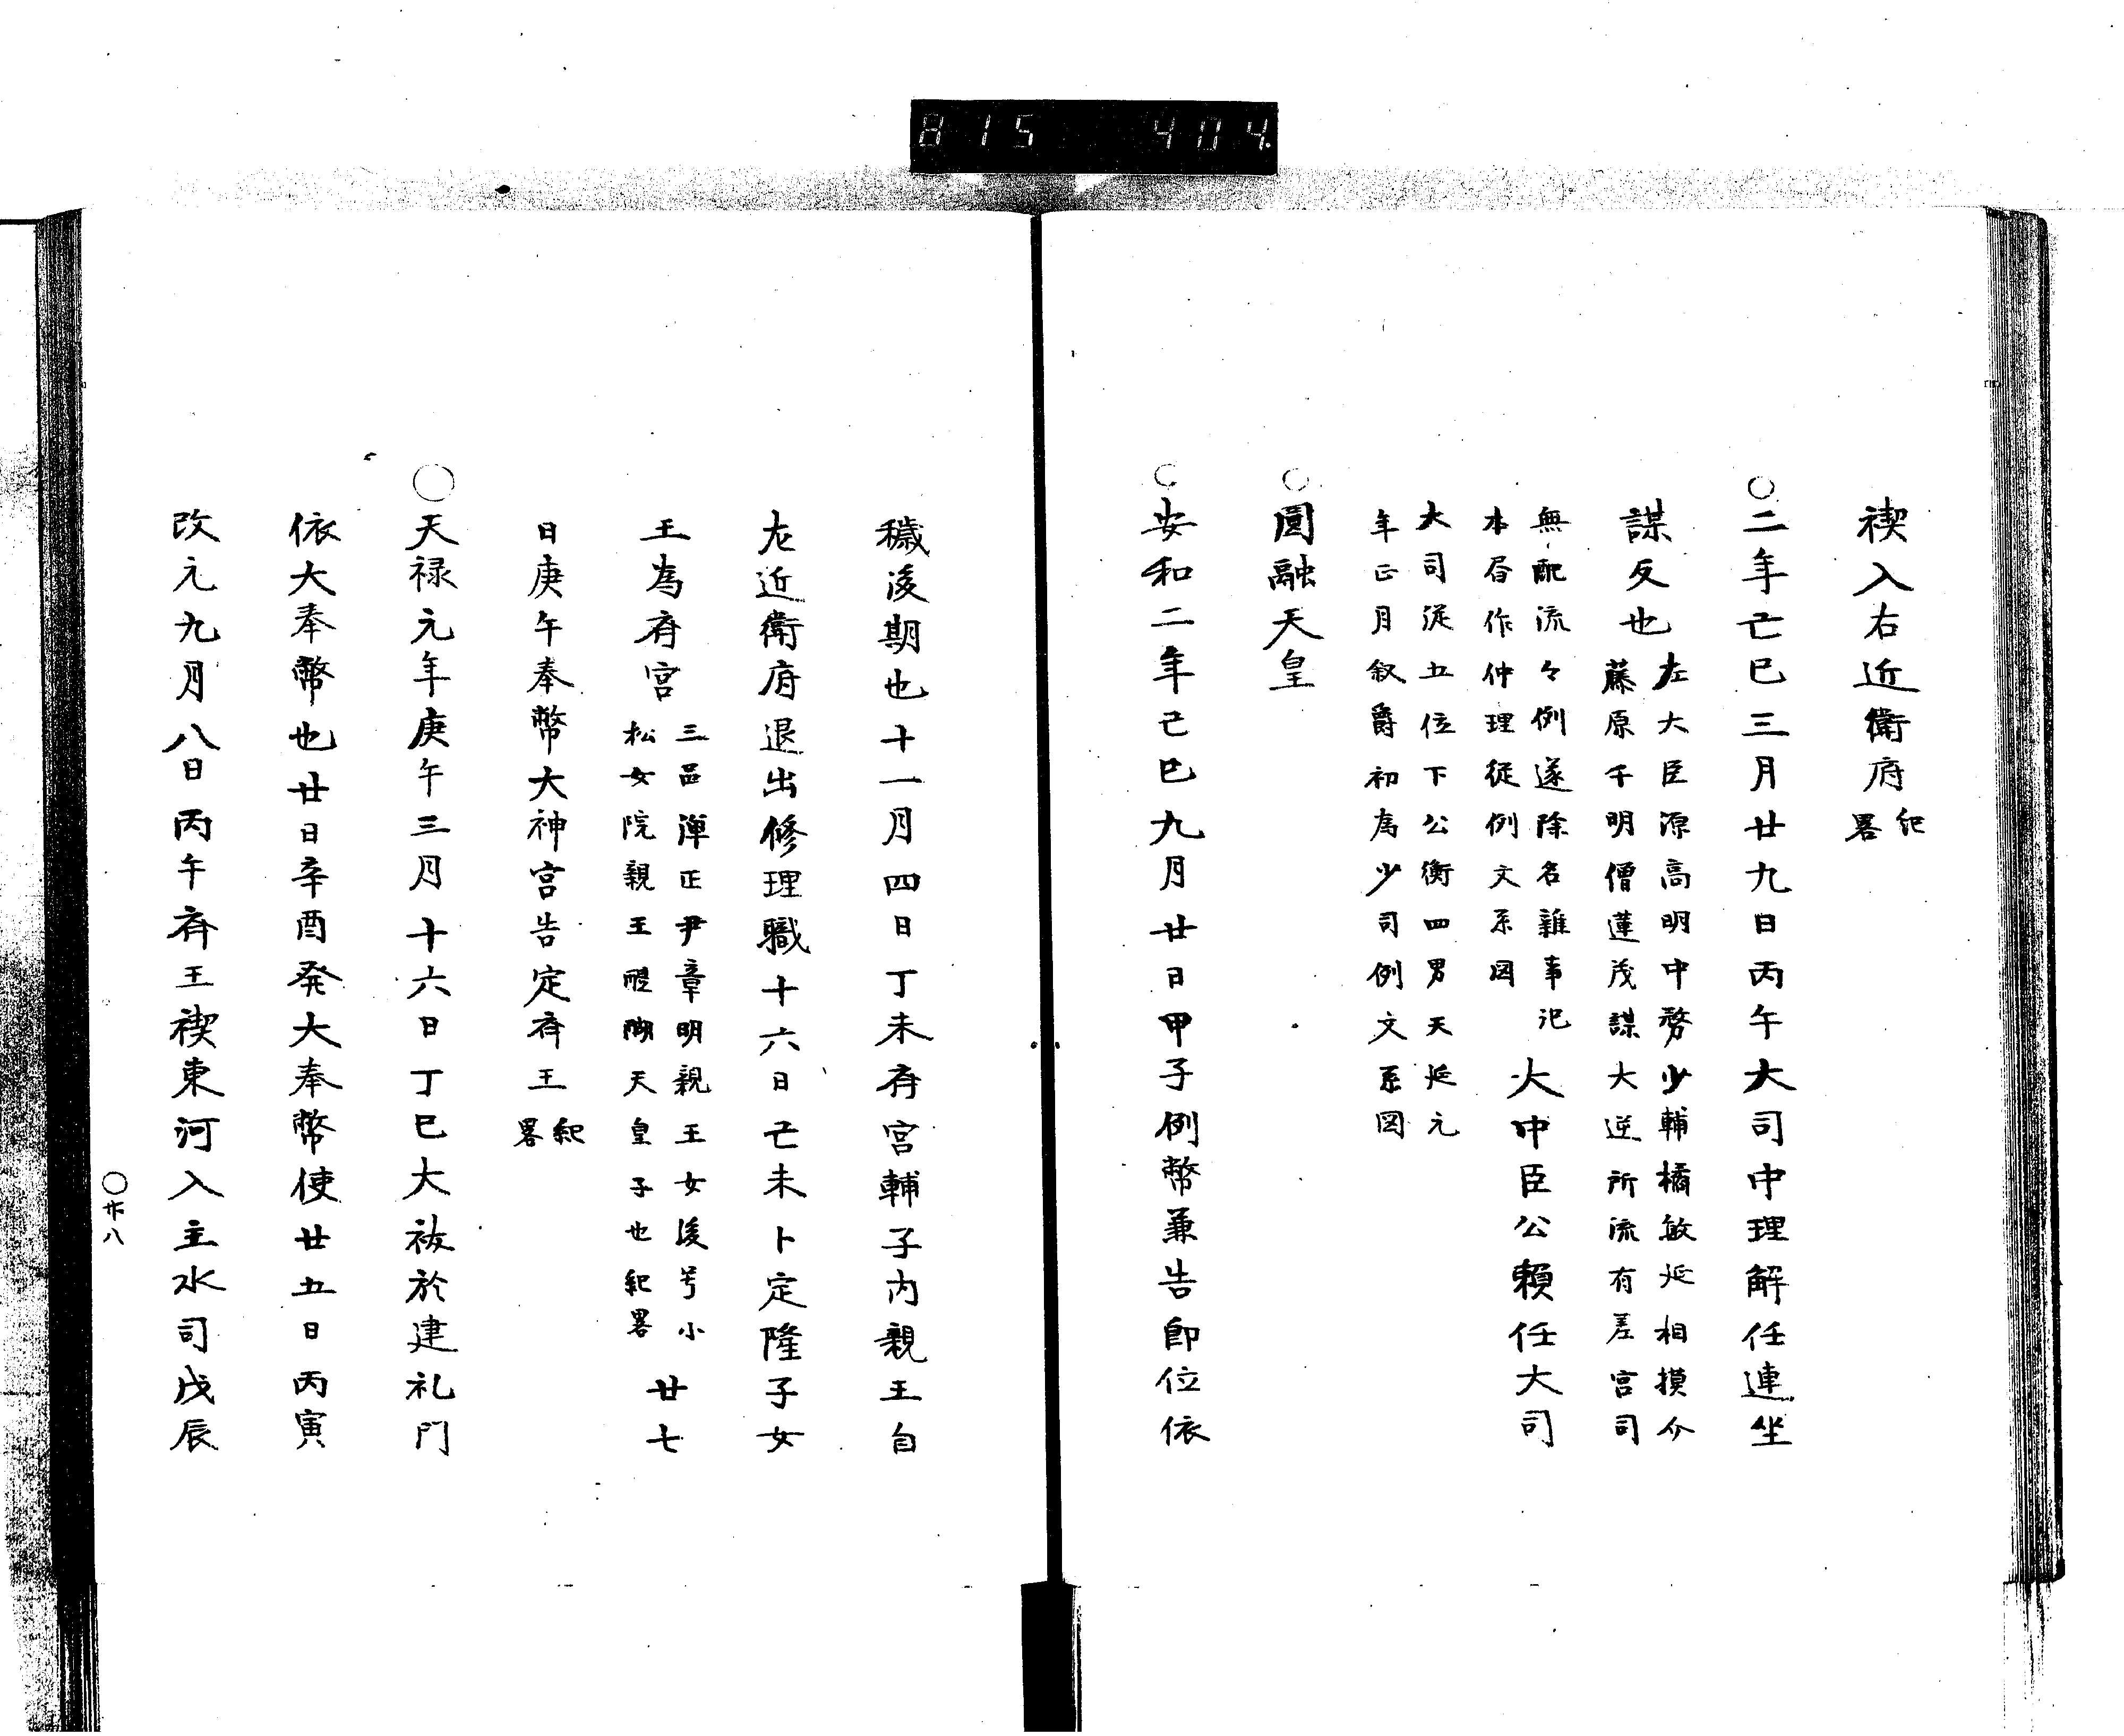 815 404.
禊入右近衛府紀畧
○二年己巳三月廿九日丙午大司中理解任連坐
謀反也左大臣源高明中務少輔橘敏延相摸介
藤原千明僧蓮茂謀大逆所流有差宮司
無配流々例遂除名雜事記
本居作仲理従例文系図
大中臣公頼任大司
大司従五位下公衡四男天延元
年正月叙爵初為少司例文系図
○圓融天皇
○安和二年己巳九月廿日甲子例幣兼告即位依
穢後期也十一月四日丁未斎宮輔子内親王自
左近衛府退出修理職十六日己未卜定隆子女
王為斎宮三品弾正尹章明親王女後号小
松女院親王醍醐天皇子也紀畧
廿七
日庚午奉幣大神宮告定斎王紀畧
○天禄元年庚午三月十六日丁巳大祓於建礼門
依大奉幣也廿日辛酉発大奉幣使廿五日丙寅
改元九月八日丙午斎王禊東河入主水司戊辰
○廿八